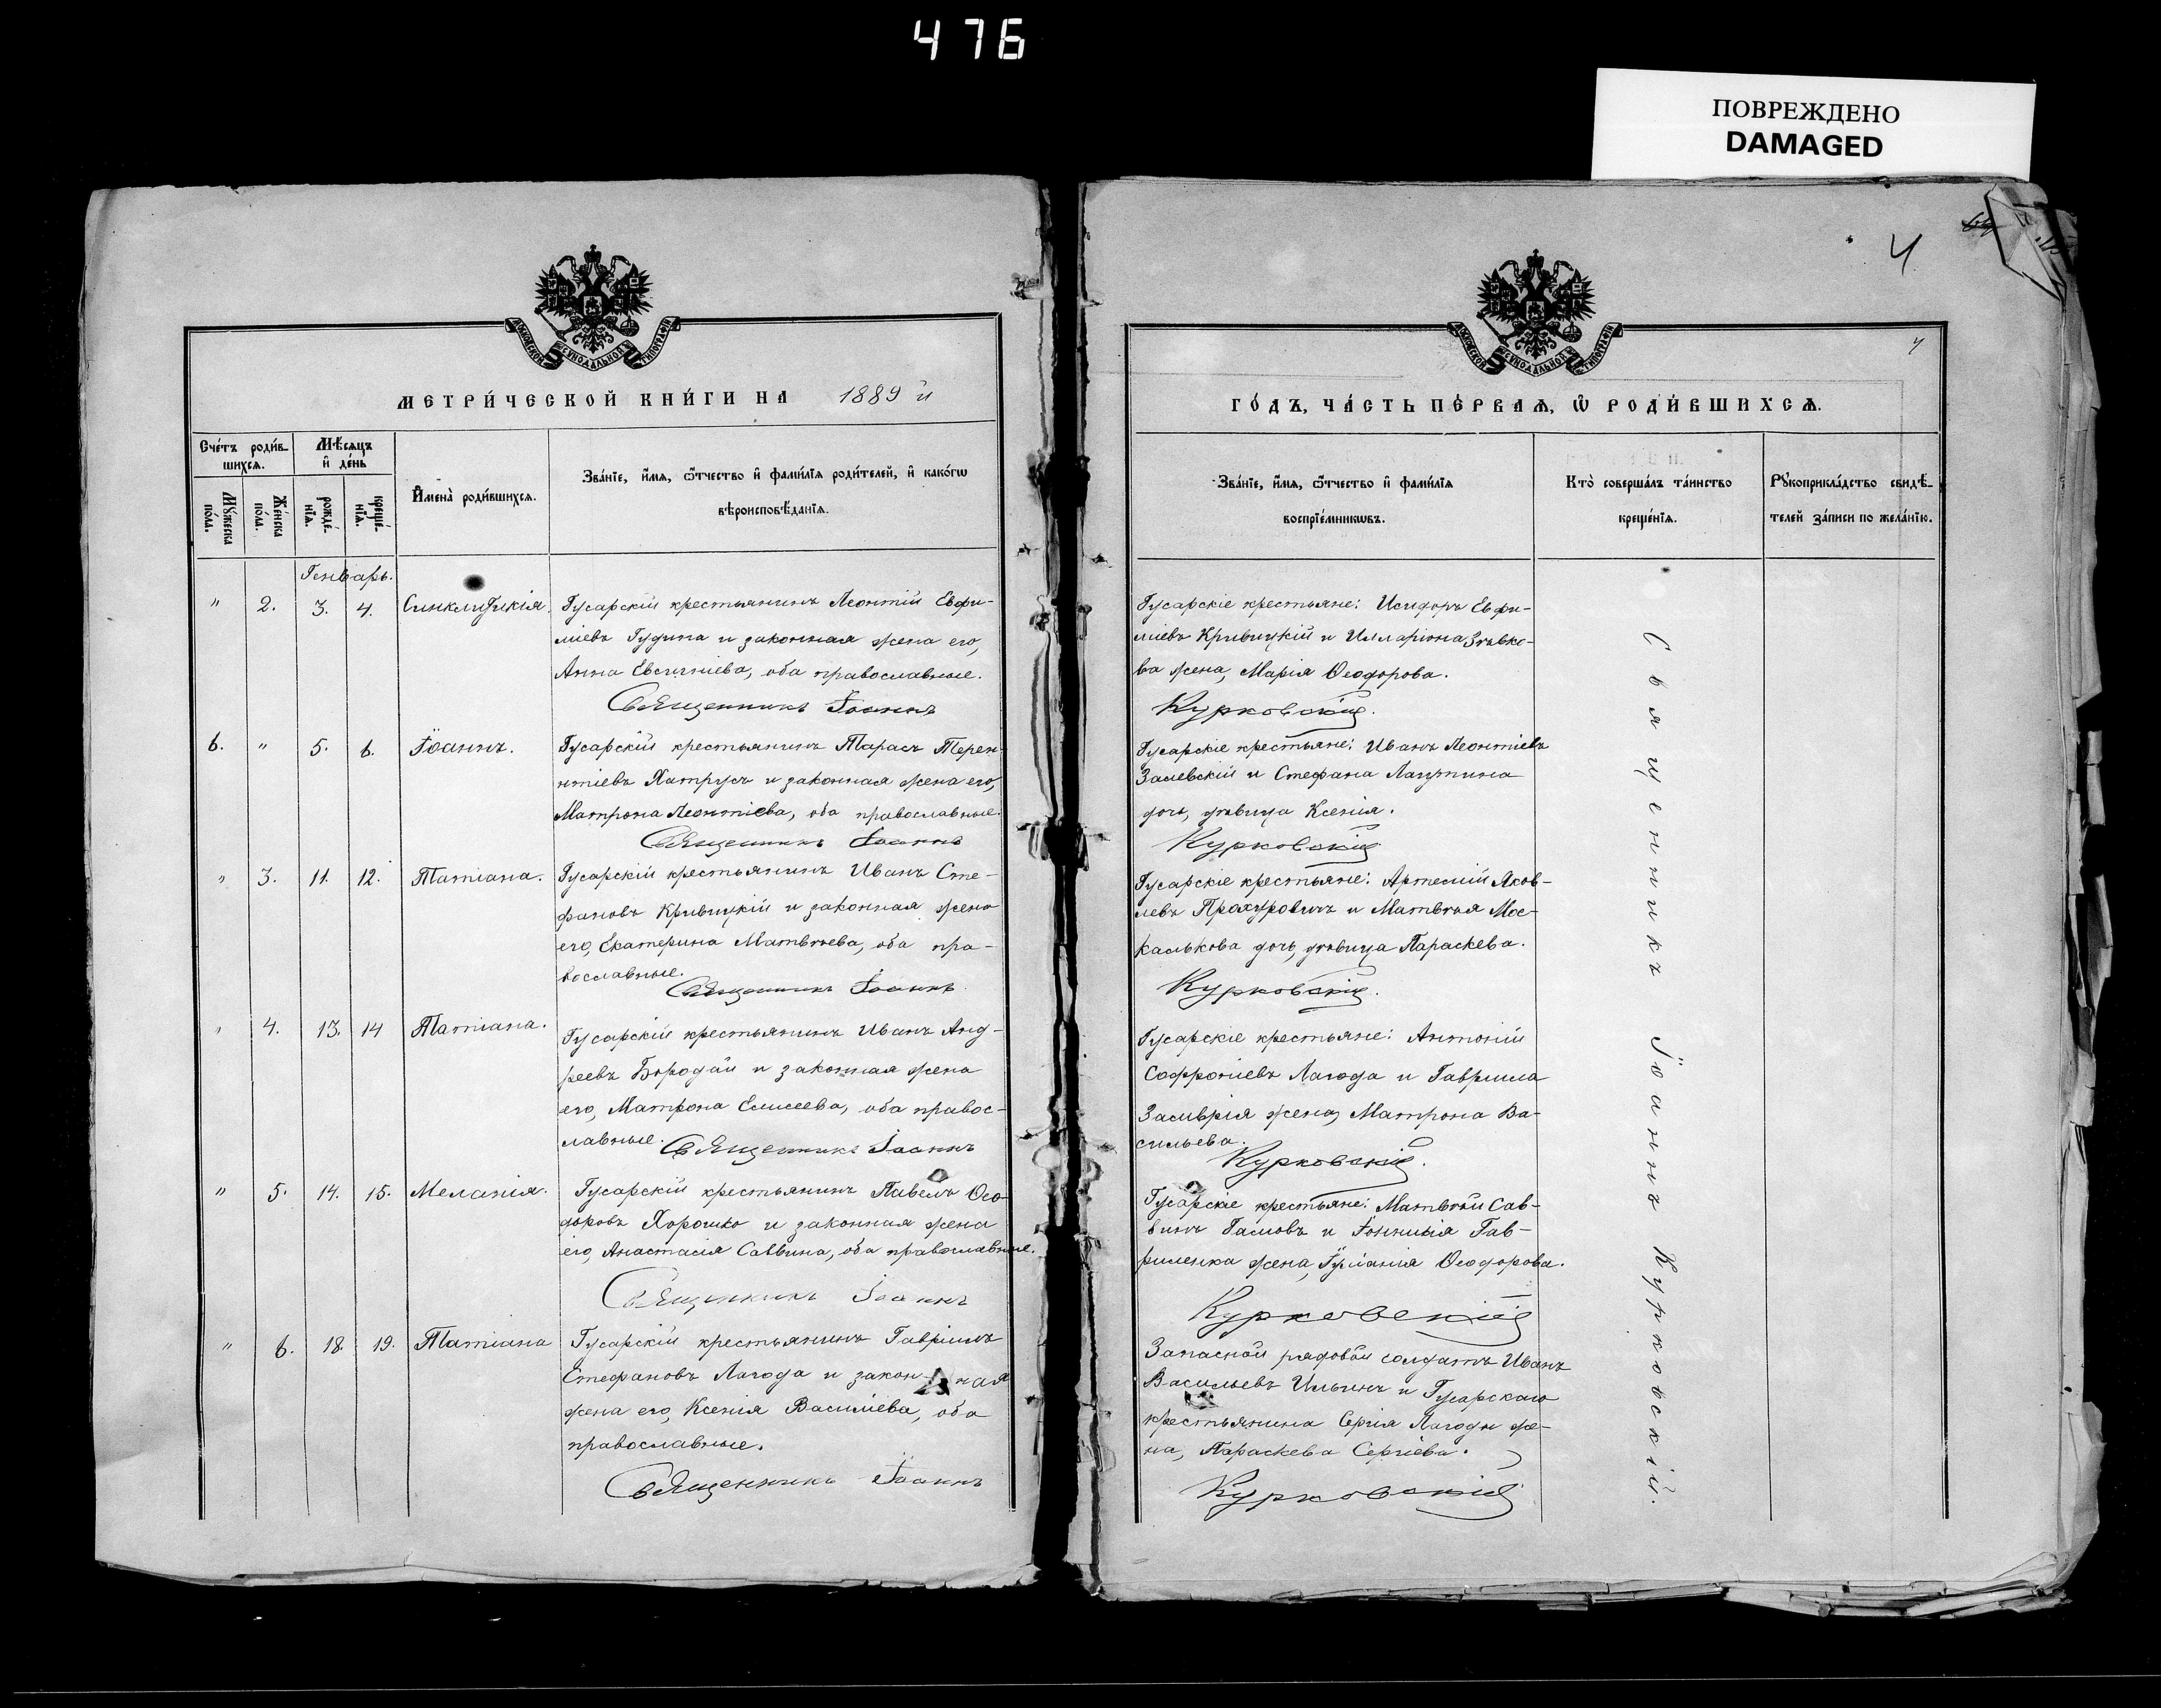 476
ПОВРЕЖДЕНО
DAMAGED
4
МОСКОВСКОЙ СѴНОДАЛЬНОЙ ТИПОГРАФІИ
МЕТРИ́ЧЕСКОЙ КНИ́ГИ НА 1889 й
Сче́тъ роди́в-
шихсѧ.
Мѣ́сѧцъ
и҆ де́нь
Мꙋ́жеска
по́ла.
Же́нска
по́ла.
рожде́-
нїѧ.
креще́-
нїѧ.
И҆мена̀ роди́вшихсѧ.
Зва́нїе, и҆́мѧ, ѻ҆́тчество и҆ фами́лїѧ роди́телей, и҆ како́гѡ
вѣроисповѣ́данїѧ.
Генварь.
" 2. 3. 4. Синклитикія. Гусарскій крестьянинъ Леонтій Евфи-
міевъ Гудима и законная жена его,
Анна Евсигніева, оба православные.
Священникъ Іоаннъ
6. " 5. 6. Іоаннъ. Гусарскій крестьянинъ Тарасъ Терен-
нтіевъ Хатрусъ и законная жена его,
Матрона Леонтіева, оба православные.
Священникъ Іоаннъ
" 3. 11. 12. Татіана. Гусарскій крестьянинъ Иванъ Сте-
фановъ Кривицкій и законная жена
его, Екатерина Матвѣева, оба пра-
вославные.
Священникъ Іоаннъ
" 4. 13. 14 Татіана. Гусарскій крестьянинъ Иванъ Анд-
реевъ Бородай и законная жена
его, Матрона Елисеева, оба правос-
лавные.
Священникъ Іоаннъ
" 5. 14. 15. Меланія. Гусарскій крестьянинъ Павелъ Ѳео-
доровъ Хорошко и законная жена
его, Анастасія Саввина, оба православные.
Священникъ Іоаннъ
" 6. 18. 19. Татіана Гусарскій крестьянинъ Гавріилъ
Стефановъ Лагода и закон-ная
жена его, Ксенія Василіева, оба
православные.
Священникъ Іоаннъ
4
МОСКОВСКОЙ СѴНОДАЛЬНОЙ ТИПОГРАФІИ
ГО́ДЪ, ЧА́СТЬ ПЕ́РВАѦ, Ѡ҆ РОДИ́ВШИХСѦ.
Зва́нїе, и҆́мѧ, ѻ҆́тчество и҆ фами́лїѧ
воспрїе́мникѡвъ.
Кто̀ соверша́лъ та́инство
креще́нїѧ.
Рꙋкоприкла́дство свидѣ́-
телей за́писи по жела́нїю.
Гусарскіе крестьяне: Исидоръ Евфи-
міевъ Кривицкій и Илларіона
ва жена, Марія Ѳеодорова.
Курковскій.
Гусарскіе крестьяне: Иванъ Леонтіевъ
Залевскій и Стефана Лагутина
дочь, дѣвица Ксенія.
Курковскій
Гусарскіе крестьяне: Артемій Яков-
левъ Прохуровичъ и Матвѣя Мос-
калькова дочь, дѣвица Параскева.
Курковскій.
Гусарскіе крестьяне: Антоній
Софроніевъ Лагода и Гавриила
жена, Матрона Ва-
сильева.
Курковскій.
Гусарскіе крестьяне: Матвѣй Сав-
винъ и Гав-
риленка жена, Ѳеодорова.
Курковскій
Запасной рядовой солдатъ Иванъ
Васильевъ Ильинъ и Гусарскаго
крестьянина Сергія Лагоды же-
на, Параскева Сергіева.
Курковскій
Священникъ Іоаннъ Курковскій.